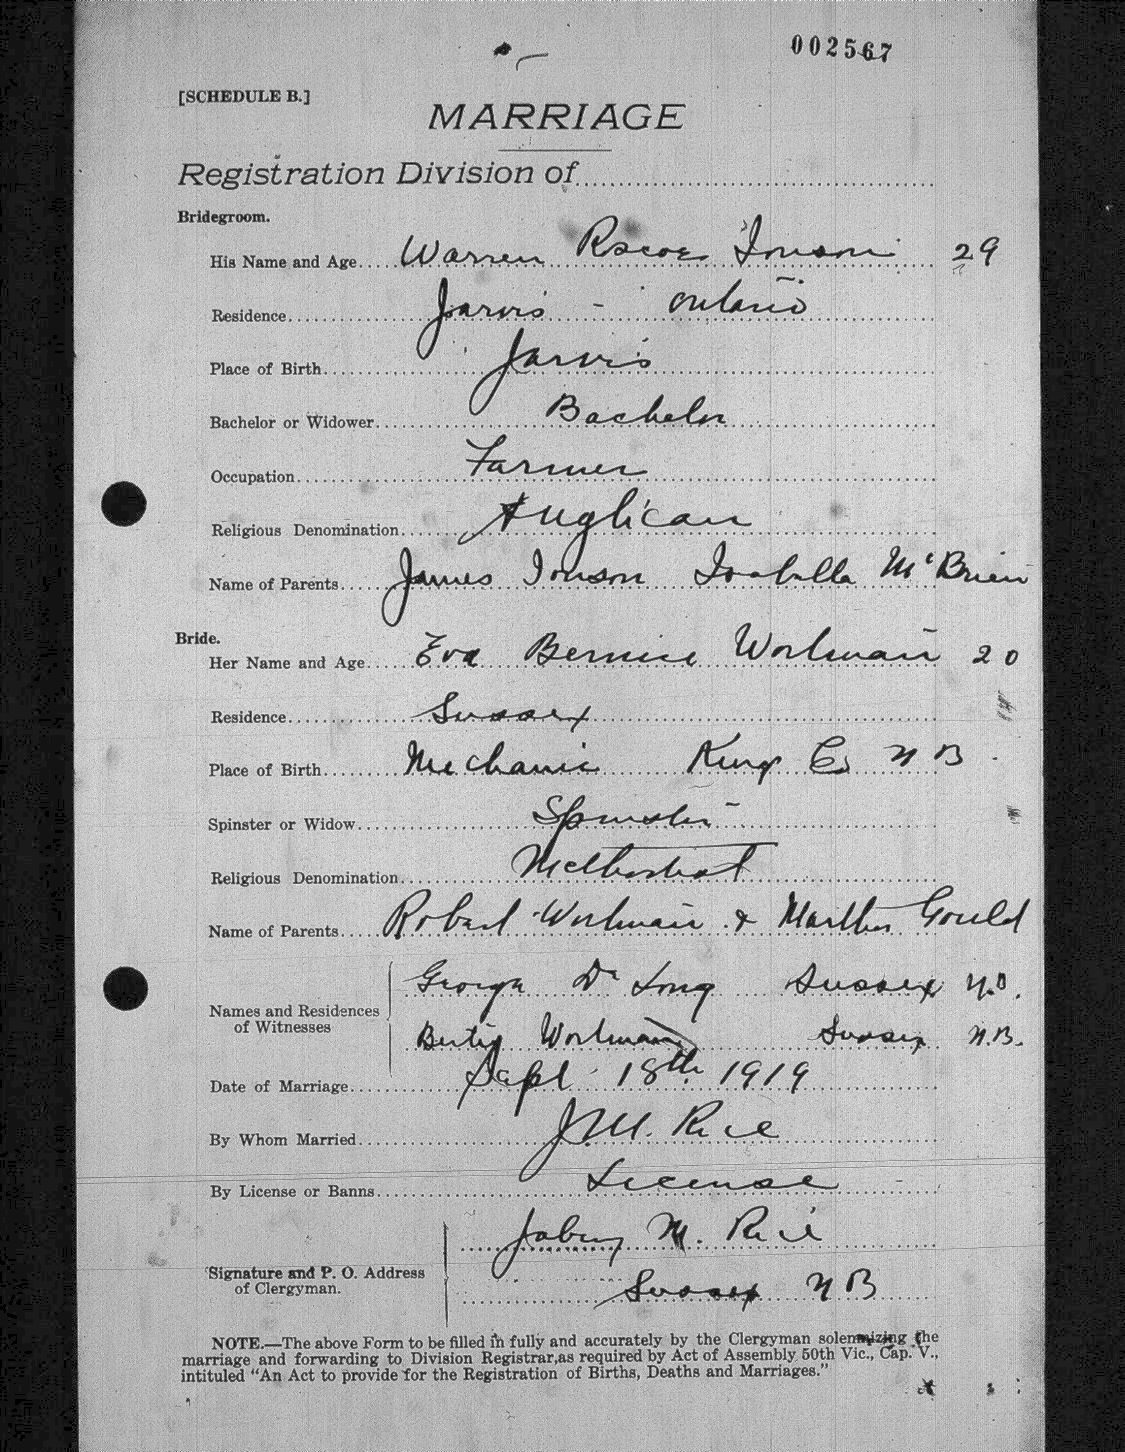 002567
[SCHEDULE B.]
MARRIAGE
Registration Division of
Bridegroom.
His Name and Age Warren Roscoe Ionson 29
Residence Jarvis - Ontario
Place of Birth Jarvis
Bachelor or Widower Bachelor
Occupation Farmer
Religious Denomination Anglican
Name of Parents James Ionson Isabella McBrien
Bride.
Her Name and Age Eva Bernice Wortman 20
Residence Sussex
Place of Birth Mechanic Kings Co N B
Spinster or Widow Spinster
Religious Denomination Methodist
Name of Parents Robert Wortman & Martha Gould
Names and Residences of Witnesses
George De Long Sussex N.B.
Bertie Wortman Sussex N.B.
Date of Marriage Sept 18th 1919
By Whom Married J.M. Rice
By License or Banns License
Signature and P. O. Address of Clergyman.
M. Rice
Sussex N B
NOTE.—The above Form to be filled in fully and accurately by the Clergyman solemnizing the
marriage and forwarding to Division Registrar,as required by Act of Assembly 50th Vic., Cap. V.,
intituled "An Act to provide for the Registration of Births, Deaths and Marriages."